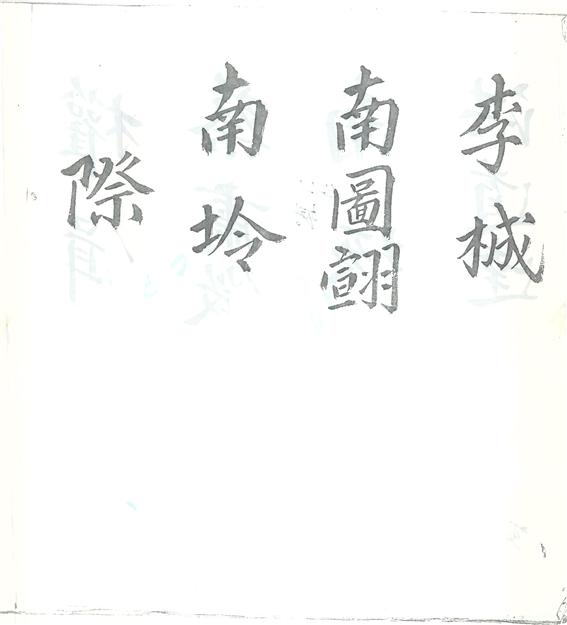 李棫
南圖翧
南坽
際